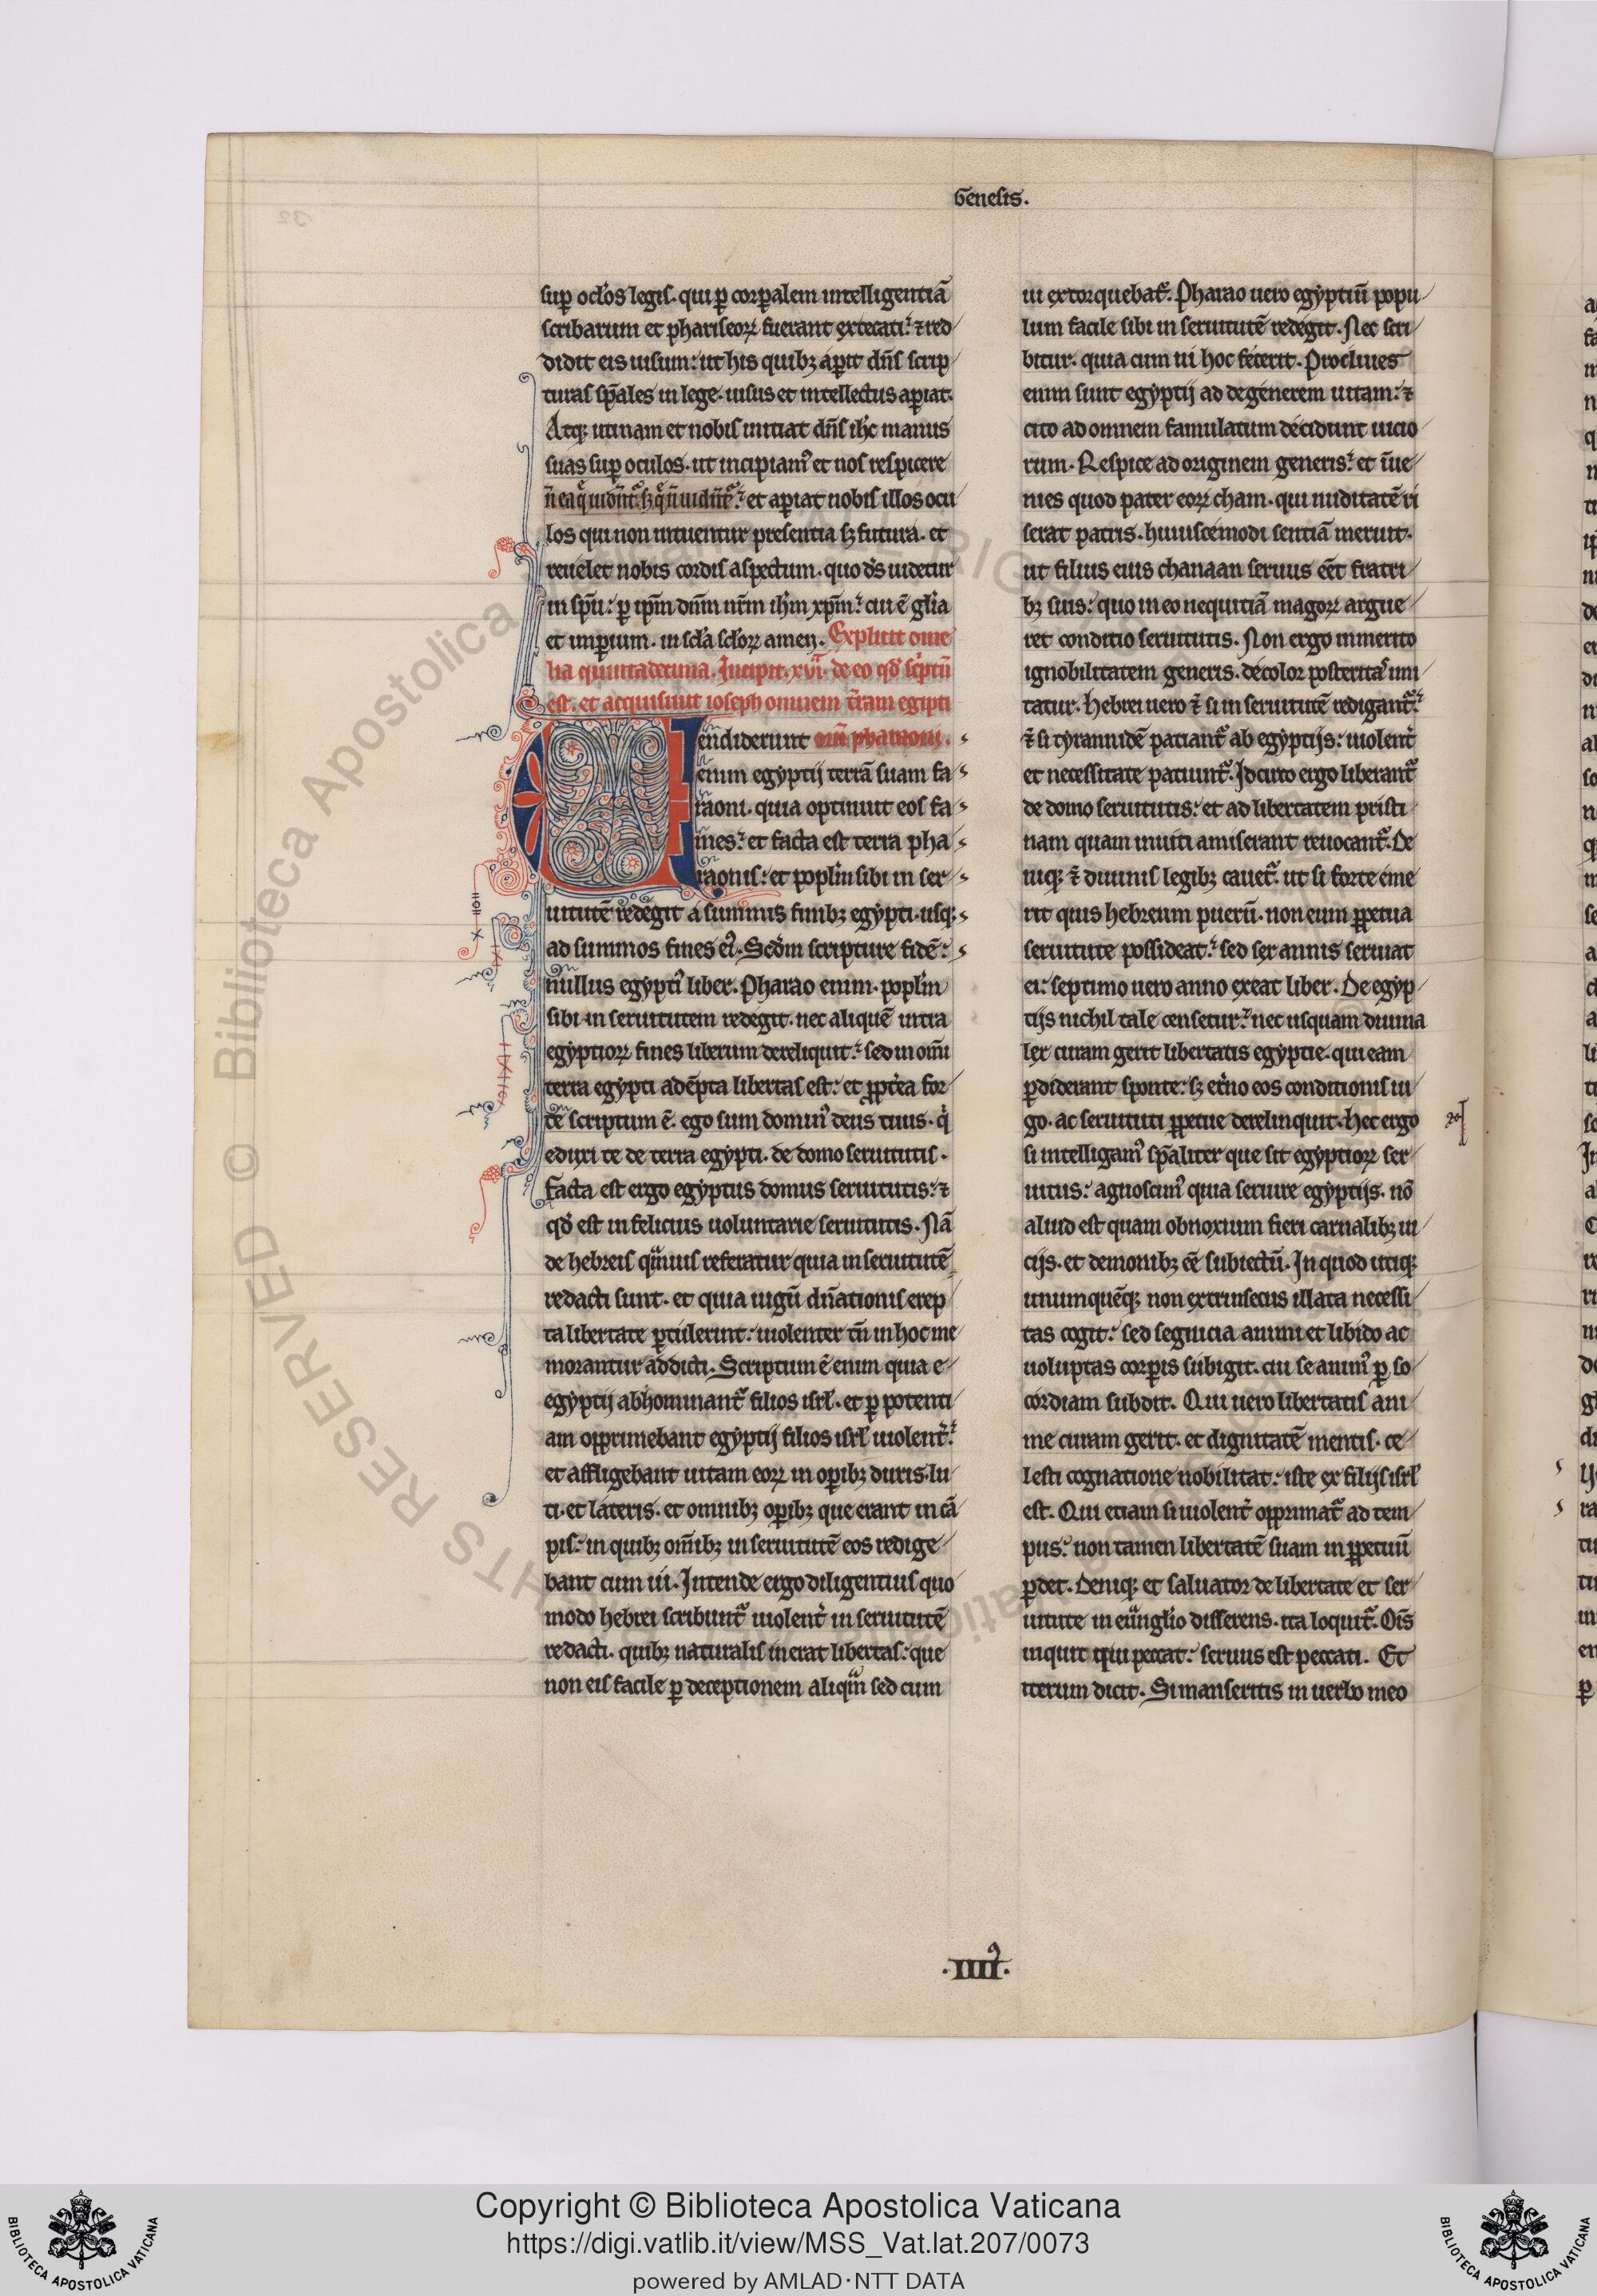 Genesis.
sup̱ ocl̓os legis. qui p̱ corp̱alem intelligentiā
scribarum et phariseoꝝ fuerant excecati: ⁊ red
didit eis uisum: ut his quibꝫ ap̱it dn̄s scrip
turas sp̄ales in lege. uisus et intellectus ap̱iat.
Atqꝫ utinam et nobis mittat dn̄s ih̄c manus
suas sup̱ oculos. ut incipiamꝰ et nos respicere
et ap̱iat nobis illos ocu
los qui non intuentur presentia sꝫ futura. et
reuelet nobis cordis aspectum. quo ds̄ uidetur
in sp̄u: p̱ ip̄m dn̄m nr̄m ih̄m xp̄m: cui ē gl̓ia
et imp̱ium. in scl̓a scl̓oꝝ amen. Explicit ome
lia quintadecima. Incipit. xvi. de eo qd̓ sc̓ptū
est. et acquisiuit ioseph omnem t̓ram egipti
Uendiderunt om̄ pharaoni.
enim egyptij terrā suam fa
raoni. quia optinuit eos fa
mes: et facta est terra pha
raonis: et popl̓m sibi in ser
uitutē redegit a summis finibꝫ egypti. usqꝫ
ad summos fines eiꝰ. Scd̓m scripture fidē:
nullus egyptiꝰ liber. Pharao enim. popl̓m
sibi in seruitutem redegit. nec aliquē intra
egyptioꝝ fines liberum dereliquit: sed in om̄i
terra egypti adēpta libertas est: et ꝓpt̓ea for
te scriptum ē. ego sum dominꝰ deus tuus. q̓
eduxi te de terra egypti. de domo seruitutis.
Facta est ergo egyptus domus seruitutis: ⁊
qd̓ est infelicius uoluntarie seruitutis. Nā
de hebreis qͣmuis referatur quia in seruitutē
redacti sunt. et quia iugū dn̄ationis erep
ta libertate p̱tulerint: uiolenter tn̄ in hoc me
morantur addicti. Scriptum ē enim quia e
egyptij abhominantᷓ filios isrl̓. et p̱ potenti
am opprimebant egyptij filios isrl̓ uiolent̓:
et affligebant uitam eoꝝ in op̱ibꝫ duris. lu
ti. et lateris. et omnibꝫ op̱ibꝫ que erant in cā
pis: in quibꝫ om̄ibꝫ in seruitutē eos redige
bant cum ui. Intende ergo diligentius quo
modo hebrei scribuntᷓ uiolent̓ in seruitutē
redacti. quibꝫ naturalis inerat libertas: que
non eis facile p̱ deceptionem aliqͣm sed cum
ui extorquebatᷓ. Pharao uero egyptiū popu
lum facile sibi in seruitutē redegit. Nec scri
bitur. quia cum ui hoc fecerit. Procliues
enim sunt egyptij ad degenerem uitam: ⁊
cito ad omnem famulatum decidunt uicio
rum. Respice ad originem generis: et īue
nies quod pater eoꝝ cham. qui nuditatē ri
serat patris. huiuscemodi sentīā meruit.
ut filius eius chanaan seruus eēt fratri
bꝫ suis: quo in eo nequitiā magoꝝ argue
ret conditio seruitutis. Non ergo inmerito
ignobilitatem generis. decolor posteritaˢ imi
tatur. Hebrei uero ⁊̄ si in seruitutē redigantᷓ:
⁊̄ si tyrannidē patiantᷓ ab egyptijs: uiolent̓
et necessitate patiuntᷓ. Idcirco ergo liberantᷓ
de domo seruitutis: et ad libertatem pristi
nam quam inuiti amiserant reuocantᷓ. De
niqꝫ ⁊̄ diuinis legibꝫ cauetᷓ. ut si forte eme
rit quis hebreum puerū. non eum ꝑpetua
seruitute possideat: sed sex annis seruiat
ei: septimo uero anno exeat liber. De egyp
tijs nichil tale censetur: nec usquam diuina
lex curam gerit libertatis egyptie. qui eam
p̱diderant sponte: sꝫ et̓no eos conditionis iu
go. ac seruituti ꝑpetue derelinquit. Hec ergo
si intelligamꝰ sp̄aliter que sit egyptioꝝ ser
uitus: agnoscimꝰ quia seruire egyptijs. nō
aliud est quam obnoxium fieri carnalibꝫ ui
cijs. et demonibꝫ eē subiectū. In quod utiqꝫ
unumquēqꝫ non extrinsecus illata necessi
tas cogit: sed segnicia animi et libido ac
uoluptas corp̱is subigit. cui se animꝰ p̱ so
cordiam subdit. Qui uero libertatis ani
me curam gerit. et dignitatē mentis. ce
lesti cognatione nobilitat: iste ex filijs isrl̓
est. Qui etiam si uiolent̓ opprimatᷓ ad tem
pus: non tamen libertatē suam in ꝑpetuū
p̱det. Deniqꝫ et saluator de libertate et ser
uitute in euͣngl̓io disserens. ita loquitᷓ. Oīs
inquit qui peccat: seruus est peccati. Et
iterum dicit. Si manseritis in uerbo meo
.IIIIꝰ.
Copyright © Biblioteca Apostolica Vaticana
https://digi.vatlib.it/view/MSS_Vat.lat.207/0073
powered by AMLAD·NTT DATA